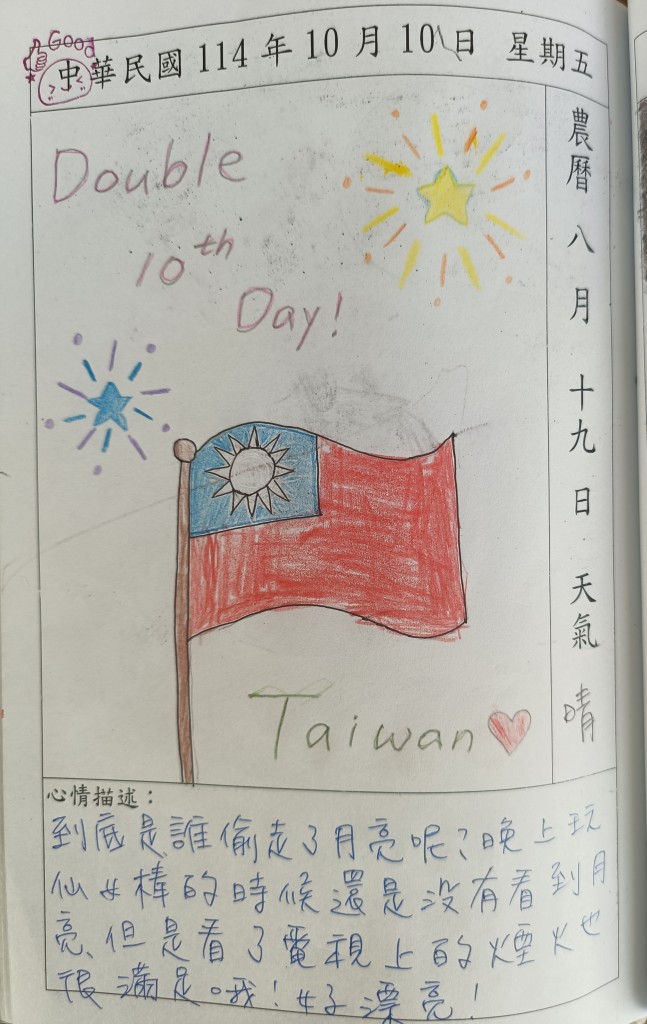 Good
中華民國 114 年 10 月 10 日 星期五
農曆 八 月 十九 日 天氣 晴
Double
10th
Day!
Taiwan
心情描述：
到底是誰偷走了月亮呢?晚上玩
仙女棒的時候還是沒有看到月
亮、但是看了電視上的煙火也
很滿足哦!好漂亮!